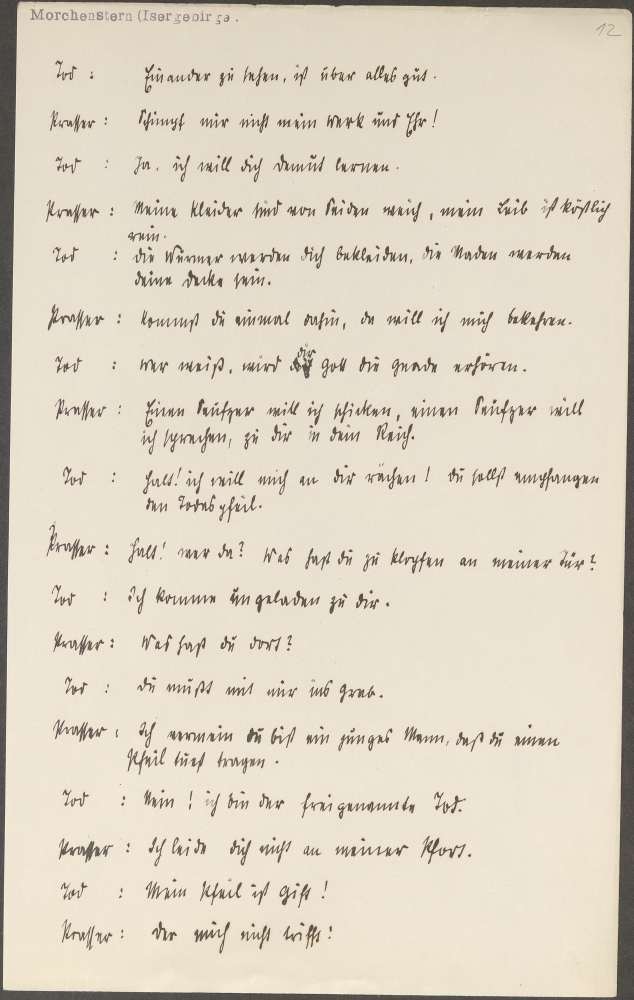 Morchenstern (Isergebirge.
12
Tod : Einander zu sehen, ist über alles gut.
Prasser : Schimpf mir nicht mein Werk und Ehr!
Tod : Ja, ich will dich Demut lernen.
Prasser : Meine Kleider sind von Seiden weich, mein Leib ist köstlich
rein.
Tod : Die Würmer werden dich bekleiden, die Maden werden
deine Decke sein.
Prasser : Kommst du einmal dahin, da will ich mich bekehren.
Tod : Wer weiß, wird dir Gott die Gnade erhören.
Prasser : Einen Seufzer will ich schicken, einen Seufzer will
ich sprechen, zu dir in dein Reich.
Tod : Halt! ich will mich an dir rächen! Du sollst empfangen
den Todespfeil.
Prasser : Halt! wer da? Was hast du zu klopfen an meiner Tür?
Tod : Ich komme ungeladen zu dir.
Prasser : Was hast du dort?
Tod : Du mußt mit mir ins Grab.
Prasser : Ich vermein du bist ein junges Mann, daß du einen
Pfeil tust tragen.
Tod : Nein! ich bin der freigenannte Tod.
Prasser : Ich leide dich nicht an meiner Pfort.
Tod : Mein Pfeil ist Gift!
Prasser : Der mich nicht trifft!